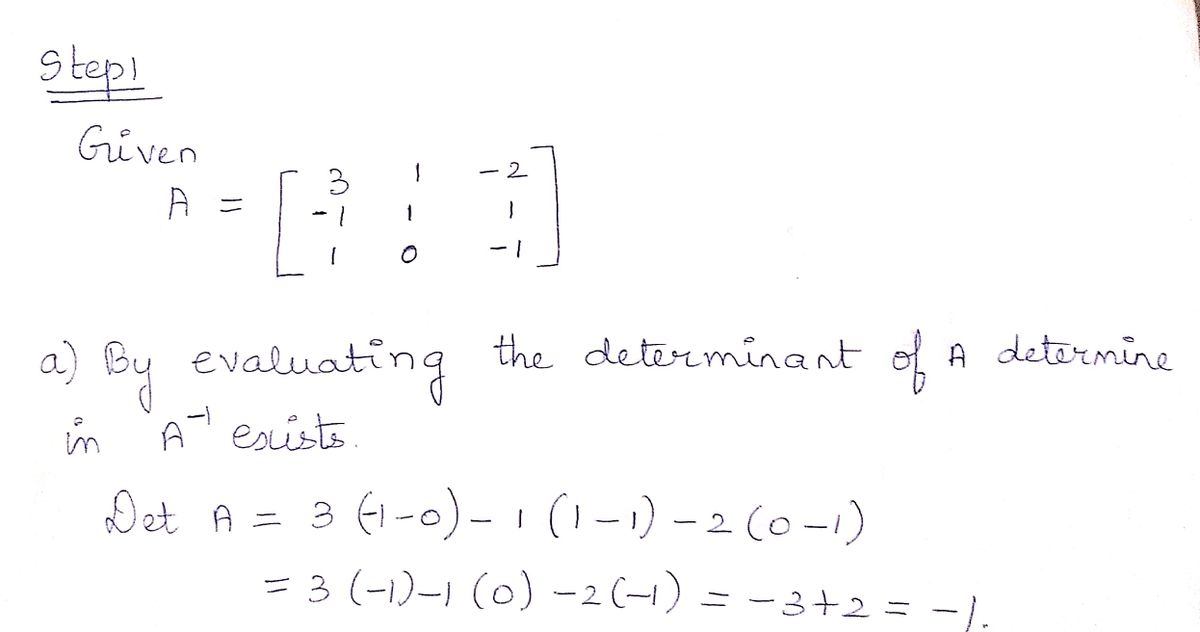 Step1
Given
A = [ 3 1 -2
-1 1 1
1 0 -1 ]
a) By evaluating the determinant of A determine
in A⁻¹ exists.
Det A = 3 (-1-0) - 1 (1-1) - 2 (0-1)
= 3 (-1) -1 (0) -2(-1) = -3+2 = -1.